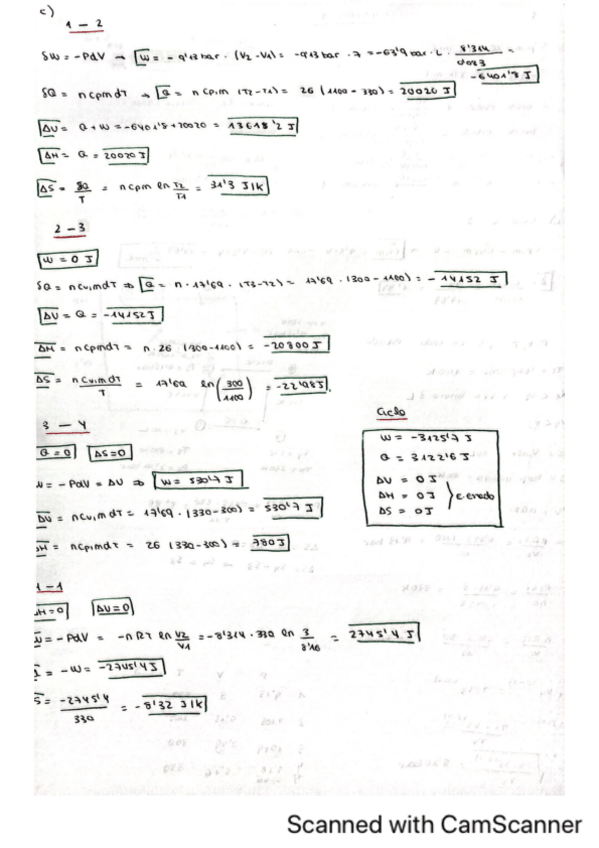 c)
1 - 2
δW = -PdV → W = -9'13 bar · (V2 - V1) = -9'13 bar · 7 = -63'9 bar · L · 8'314 / 0'083 = -6401'8 J
δQ = n cpm dT → Q = n cpm (T2 - T1) = 26 (1100 - 330) = 20020 J
ΔU = Q + W = -6401'8 + 20020 = 13618'2 J
ΔH = Q = 20020 J
ΔS = δQ / T = n cpm ln T2 / T1 = 31'3 J/K
2 - 3
W = 0 J
δQ = n cv,m dT ⇒ Q = n · 17'69 · (T3 - T2) = 17'69 · (300 - 1100) = -14152 J
ΔU = Q = -14152 J
ΔH = n cpm dT = n · 26 (300 - 1100) = -20800 J
ΔS = n cv,m dT / T = 17'69 ln (300 / 1100) = -22'98 J.
3 - 4
Q = 0 ΔS = 0
W = -PdV = ΔU ⇒ W = 530'7 J
ΔU = n cv,m dT = 17'69 · (330 - 300) = 530'7 J
ΔH = n cp,m dT = 26 (330 - 300) = 780 J
Ciclo
W = -3125'7 J
Q = 3122'6 J
ΔU = 0 J
ΔH = 0 J } cerrado
ΔS = 0 J
-1
ΔH = 0 ΔU = 0
W = -PdV = -nRT ln V2 / V1 = -8'314 · 330 ln 3 / 8'16 = 2745'4 J
= -W = -2745'4 J
S = -2745'4 / 330 = -8'32 J/K
Scanned with CamScanner